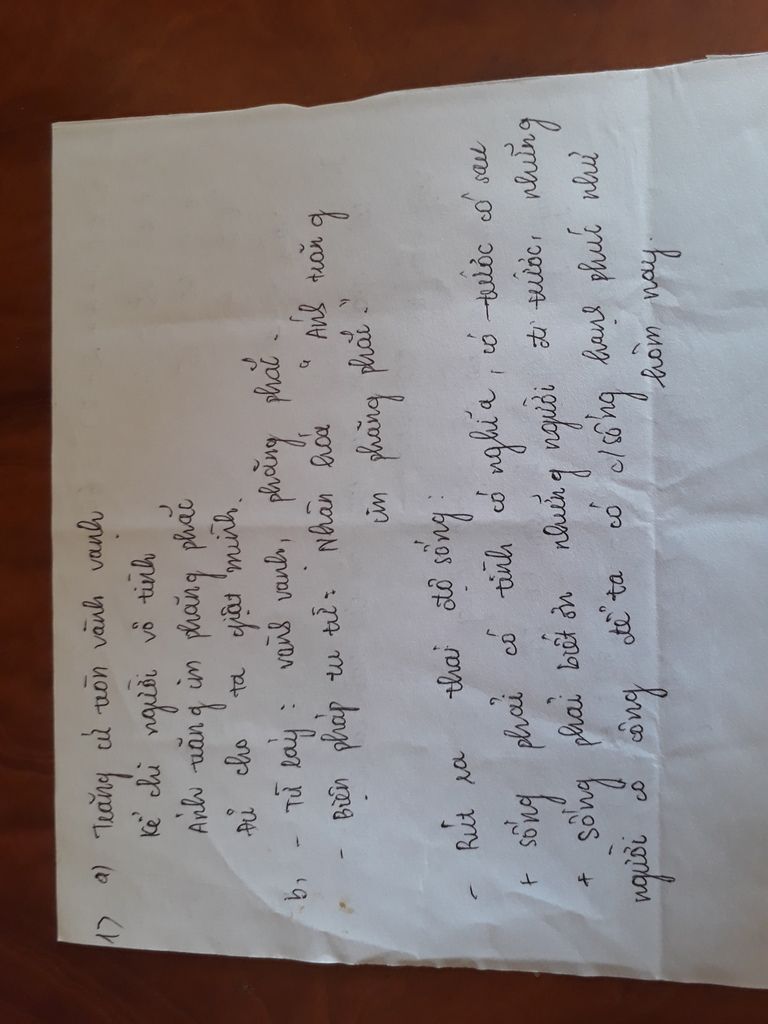 1) a) Trăng cứ tròn vành vạnh
Kể chi người vô tình
Ánh trăng im phăng phắc
Đủ cho ta giật mình.
b, - Từ láy: vành vạnh, phăng phắc.
- Biện pháp tu từ: Nhân hóa "Ánh trăng
im phăng phắc."
- Rút ra thái độ sống:
+ sống phải có tình có nghĩa, có trước có sau
+ Sống phải biết ơn những người đi trước, những
người có công để ta có c/sống hạnh phúc như
hôm nay.